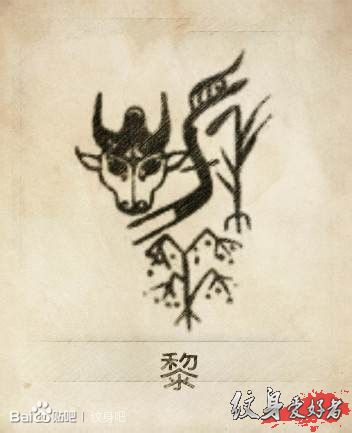 黎
Bai贴吧 | 纹身吧
纹身爱好者